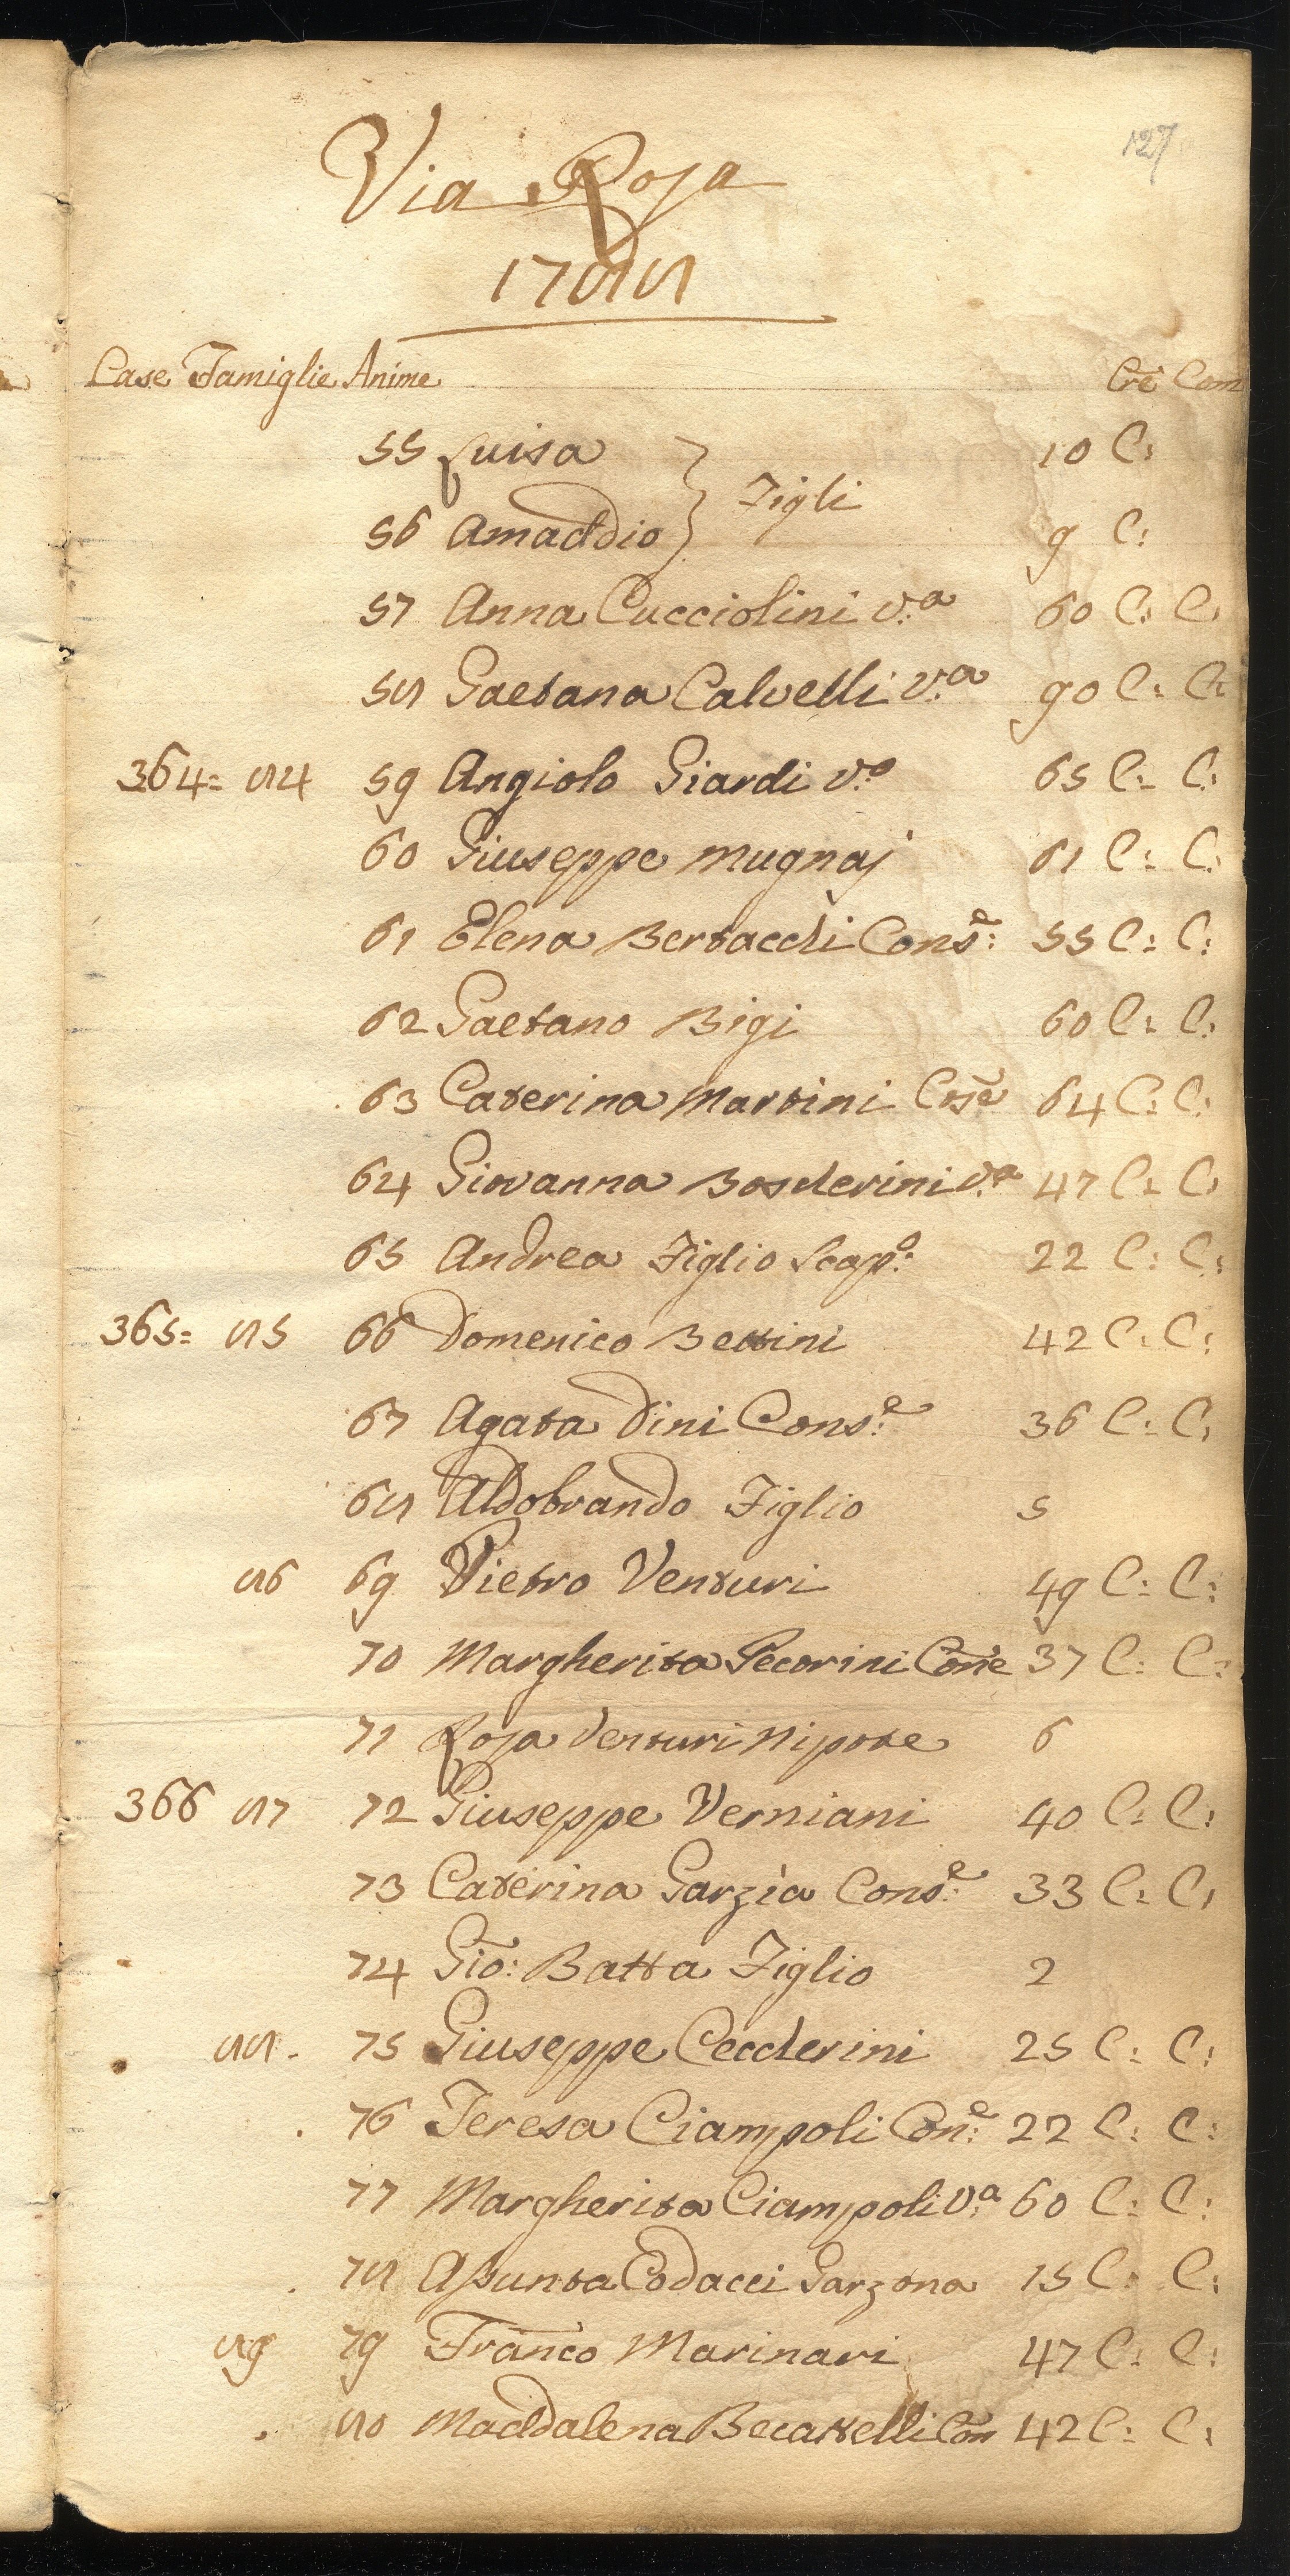 127
Via Rosa
1788
Case Famiglie Anime Cre Com
55 Luisa } Figli 10 C:
56 Amaddio } 9 C:
57 Anna Cucciolini v:a 60 C: C:
58 Gaetana Calvetti v:a 90 C: C:
364= 84 59 Angiolo Giardi v:o 65 C: C:
60 Giuseppe Mugnaj 61 C: C:
61 Elena Bertacchi Cons:e 55 C: C:
62 Gaetano Bigi 60 C: C:
63 Caterina Martini Cose 64 C: C:
64 Giovanna Boscherini v:a 47 C: C:
65 Andrea Figlio Scap:o 22 C: C:
365= 85 66 Domenico Bettini 42 C: C:
67 Agata Dini Cons:e 36 C: C:
68 Aldobrando Figlio 5
86 69 Pietro Venturi 49 C: C:
70 Margherita Pecorini Cone 37 C: C:
71 Rosa Venturi Nipote 6
366 87 72 Giuseppe Verniani 40 C: C:
73 Caterina Garzia Cons:e 33 C: C:
74 Gio: Batta Figlio 2
88. 75 Giuseppe Ceccherini 25 C: C:
76 Teresa Ciampoli Con:e 22 C: C:
77 Margherita Ciampoli v:a 60 C: C:
78 Assunta Codacci Garzona 15 C: C:
89 79 Franco Marinari 47 C: C:
80 Maddalena Becattelli Con 42 C: C: